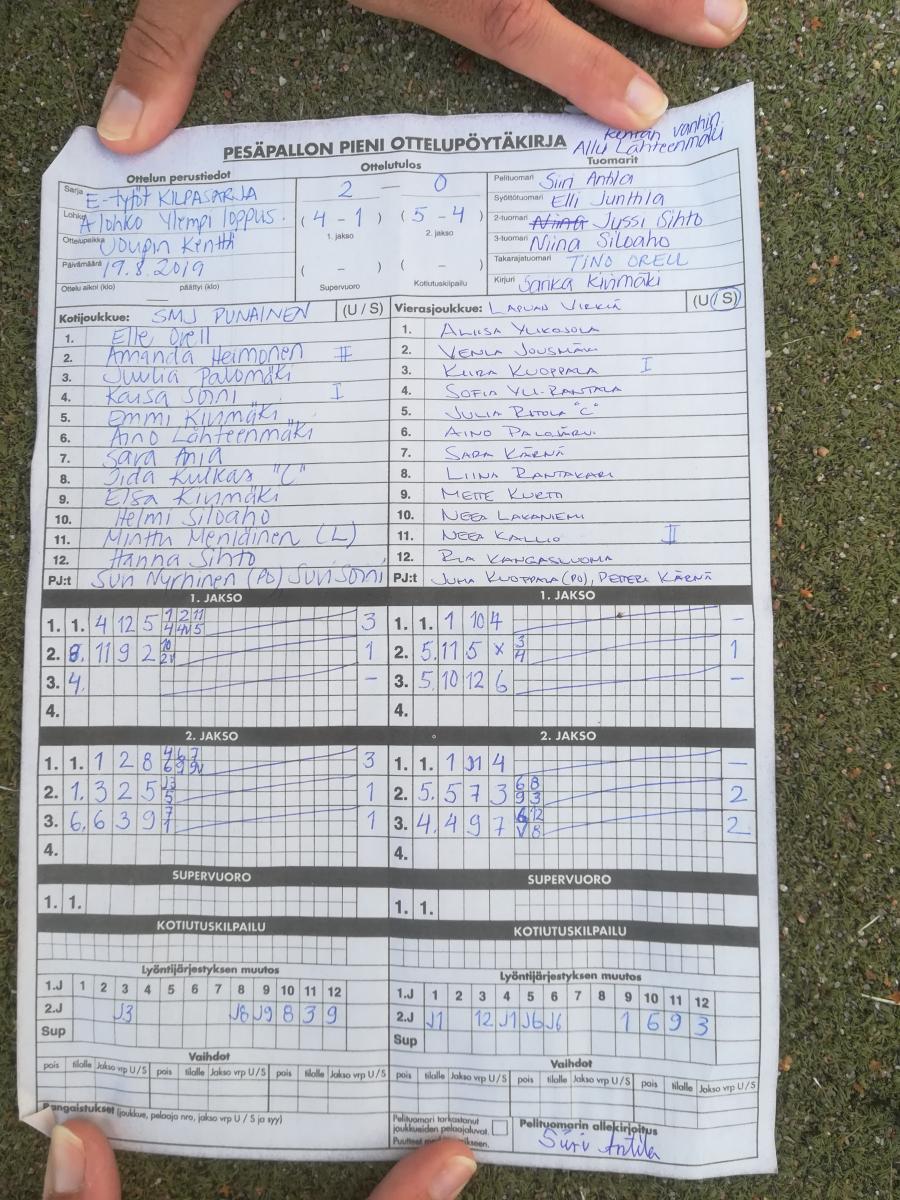 Kentän vanhin
Allu Lähteenmäki
PESÄPALLON PIENI OTTELUPÖYTÄKIRJA
Ottelun perustiedot
Ottelutulos
Tuomarit
Sarja E-tytöt KILPASARJA
Lohko A lohko Ylempi loppus.
Ottelupaikka Joupin Kenttä
Päivämäärä 19.8.2019
Ottelu alkoi (klo) — päättyi (klo)
2 — 0
( 4 - 1 ) ( 5 - 4 )
1. jakso 2. jakso
( - ) ( - )
Supervuoro Kotiutuskilpailu
Pelituomari Siiri Antila
Syöttötuomari Elli Junttila
2-tuomari Niina Jussi Sihto
3-tuomari Niina Siloaho
Takarajatuomari TINO ORELL
Kirjuri Sanka Kivimäki
Kotijoukkue: SMJ PUNAINEN (U / S)
1. Elle Orell
2. Amanda Heimonen II
3. Juulia Palomäki
4. Kaisa Sorni I
5. Emmi Kivimäki
6. Aino Lähteenmäki
7. Sara Ania
8. Iida Kulkas "C"
9. Elsa Kivimäki
10. Helmi Siloaho
11. Minttu Menidinen (L)
12. Hanna Sihto
PJ:t Suvi Nyrhinen (PJ) Suvi Sorni
Vierasjoukkue: LAPUAN VIRKIÄ (U / S)
1. ALIISA YLIKOJOLA
2. VENLA JOUSMÄKI
3. KIIRA KUOPPALA I
4. SOFIA YLI-RANTALA
5. JULIA RITOLA "C"
6. AINO PALOJÄRVI
7. SARA KÄRNÄ
8. LIINA RANTAKARI
9. METTE KURTO
10. NEEA LAKANIEMI
11. NEEA KALLIO II
12. RIA KANGASLUOMA
PJ:t JUHA KUOPPALA (PJ), PETTERI KÄRNÄ
1. JAKSO
1. 1. 4 12 5 1 2 11 3
4 4V 5
2. 8. 11 9 2 10 1
2V
3. 4. –
4.
1. JAKSO
1. 1. 1 10 4 –
2. 5. 11 5 x 3 1
4
3. 5. 10 12 6 –
4.
2. JAKSO
1. 1. 1 2 8 4 6 7 3
6 9 9V
2. 1. 3 2 5 J3 1
5
3. 6. 6 3 9 7 1
1
4.
2. JAKSO
1. 1. 1 J1 4 –
2. 5. 5 7 3 6 8 2
9 3
3. 4. 4 9 7 6 12 2
V 8
4.
SUPERVUORO
1. 1.
SUPERVUORO
1. 1.
KOTIUTUSKILPAILU
KOTIUTUSKILPAILU
Lyöntijärjestyksen muutos
1.J 1 2 3 4 5 6 7 8 9 10 11 12
2.J J3 J8 J9 8 3 9
Sup
Lyöntijärjestyksen muutos
1.J 1 2 3 4 5 6 7 8 9 10 11 12
2.J J1 12 J1 J6 J6 1 6 9 3
Sup
Vaihdot
pois tilalle Jakso vrp U/S pois tilalle Jakso vrp U/S pois tilalle Jakso vrp U/S
Vaihdot
pois tilalle Jakso vrp U/S pois tilalle Jakso vrp U/S pois tilalle Jakso vrp U/S
Rangaistukset (joukkue, pelaaja nro, jakso vrp U / S ja syy)
Pelituomari tarkastanut
joukkueiden pelaajaluvat.
Puutteet
Pelituomarin allekirjoitus
Siiri Antila